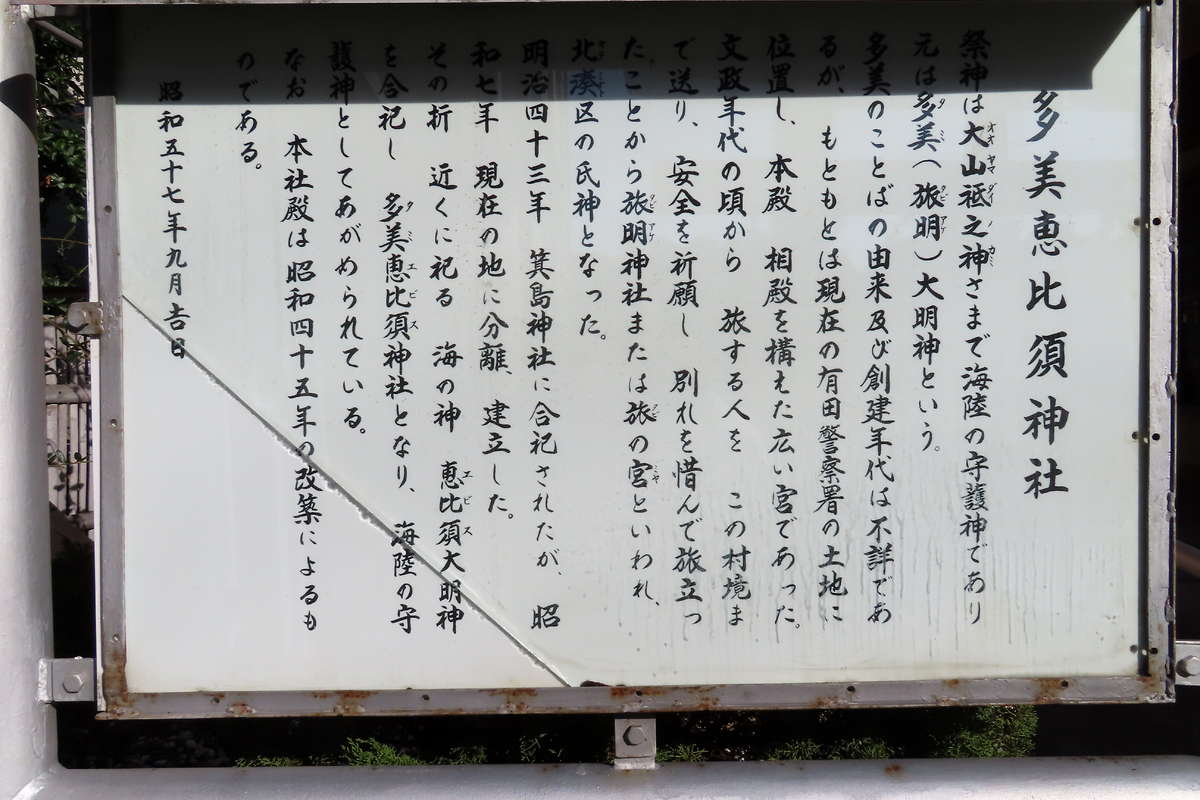 多美恵比須神社
祭神は大山祗之神さまで海陸の守護神であり
元は多美(旅明)大明神という。
多美のことばの由来及び創建年代は不詳であ
るが、もともとは現在の有田警察署の土地に
位置し、本殿 相殿を構えた広い宮であった。
文政年代の頃から 旅する人を この村境ま
で送り、安全を祈願し 別れを惜んで旅立っ
たことから旅明神社または旅の宮といわれ、
北湊区の氏神となった。
明治四十三年 箕島神社に合祀されたが、昭
和七年 現在の地に分離、建立した。
その折 近くに祀る 海の神 恵比須大明神
を合祀し 多美恵比須神社となり、海陸の守
護神としてあがめられている。
なお 本社殿は昭和四十五年の改築によるも
のである。
昭和五十七年九月吉日